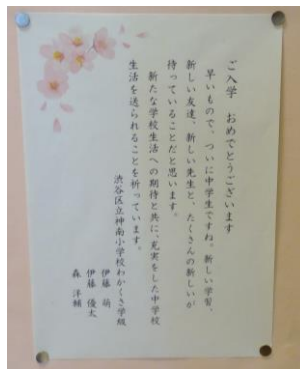 ご入学　おめでとうございます
早いもので、ついに中学生ですね。新しい学習、
新しい友達、新しい先生と、たくさんの新しいが
待っていることだと思います。
新たな学校生活への期待と共に、充実をした中学校
生活を送られることを祈っています。
渋谷区立神南小学校わかくさ学級
伊藤　萌
伊藤　優太
森　洋輔